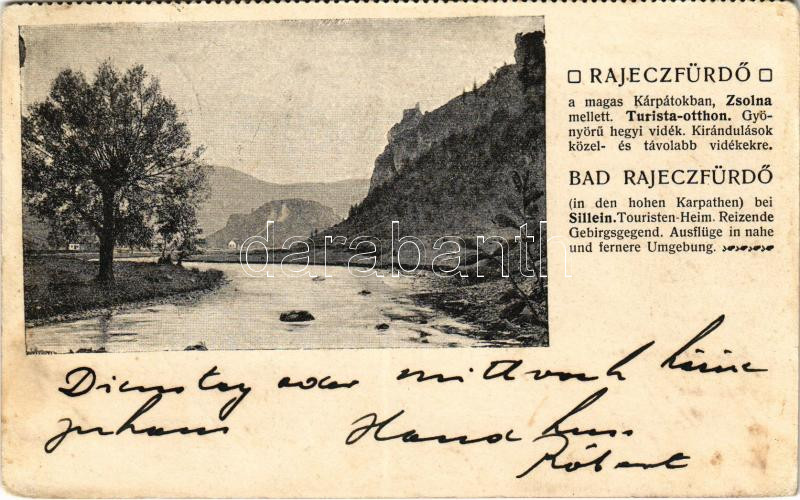 RAJECZFÜRDŐ
a magas Kárpátokban, Zsolna
mellett. Turista-otthon. Gyö-
nyörű hegyi vidék. Kirándulások
közel- és távolabb vidékekre.
BAD RAJECZFÜRDŐ
(in den hohen Karpathen) bei
Sillein. Touristen-Heim. Reizende
Gebirgsgegend. Ausflüge in nahe
und fernere Umgebung.
darabanth
Dienstag oder mittwoch
zuhaus Hand
Róbert